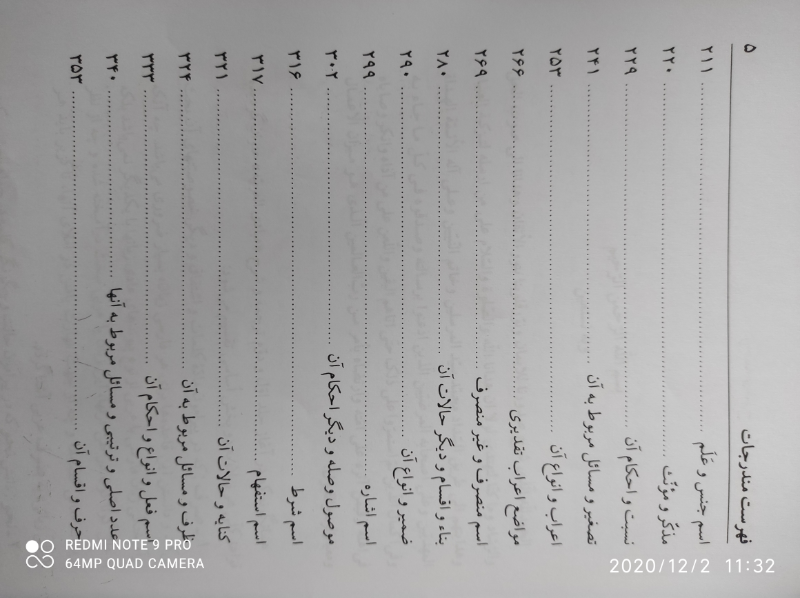 فهرست مندرجات ۵
اسم جنس و عَلَم ........ ۲۱۱
مذکّر و مؤنّث ........ ۲۲۰
نسبت و احکام آن ........ ۲۲۹
تصغیر و مسائل مربوط به آن ........ ۲۴۱
اعراب و انواع آن ........ ۲۵۳
مواضع اعراب تقدیری ........ ۲۶۶
اسم منصرف و غیر منصرف ........ ۲۶۹
بناء و اقسام و دیگر حالات آن ........ ۲۸۰
ضمیر و انواع آن ........ ۲۹۰
اسم اشاره ........ ۲۹۹
موصول وصله و دیگر احکام آن ........ ۳۰۲
اسم شرط ........ ۳۱۶
اسم استفهام ........ ۳۱۷
کنایه و حالات آن ........ ۳۲۱
ظرف و مسائل مربوط به آن ........ ۳۲۴
اسم فعل و انواع و احکام آن ........ ۳۳۳
عدد اصلی و ترتیبی و مسائل مربوط به آنها ........ ۳۴۰
حرف و اقسام آن ........ ۳۵۳
REDMI NOTE 9 PRO
64MP QUAD CAMERA
2020/12/2 11:32